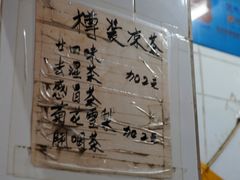 樽装凉茶
廿四味
去湿茶 加2元
感冒茶
菊花雪梨
开喉茶 加2元